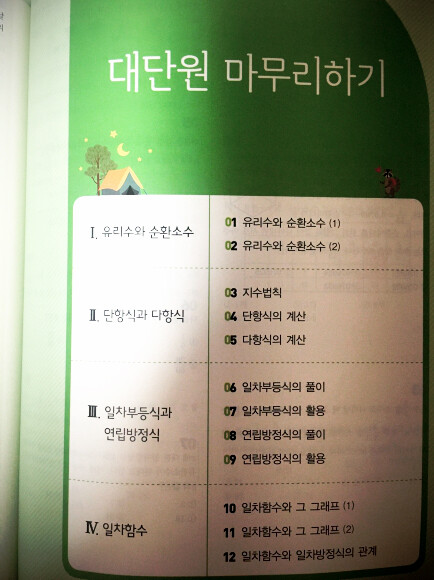 대단원 마무리하기
Ⅰ. 유리수와 순환소수
01 유리수와 순환소수 (1)
02 유리수와 순환소수 (2)
Ⅱ. 단항식과 다항식
03 지수법칙
04 단항식의 계산
05 다항식의 계산
Ⅲ. 일차부등식과
연립방정식
06 일차부등식의 풀이
07 일차부등식의 활용
08 연립방정식의 풀이
09 연립방정식의 활용
Ⅳ. 일차함수
10 일차함수와 그 그래프 (1)
11 일차함수와 그 그래프 (2)
12 일차함수와 일차방정식의 관계